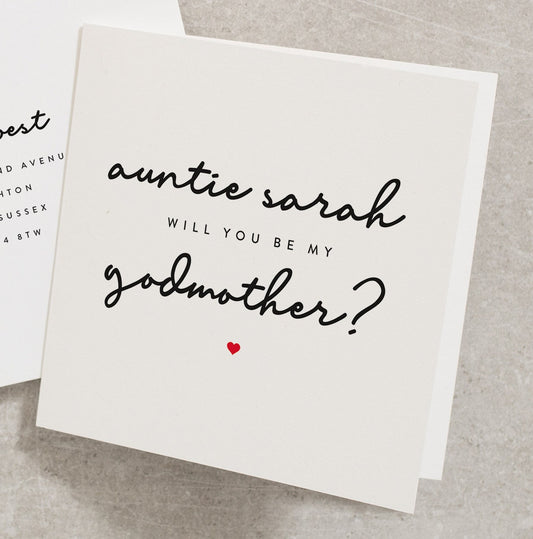 auntie sarah
WILL YOU BE MY
godmother?
est
ND AVENU
HTON
SUSSEX
4 8TW